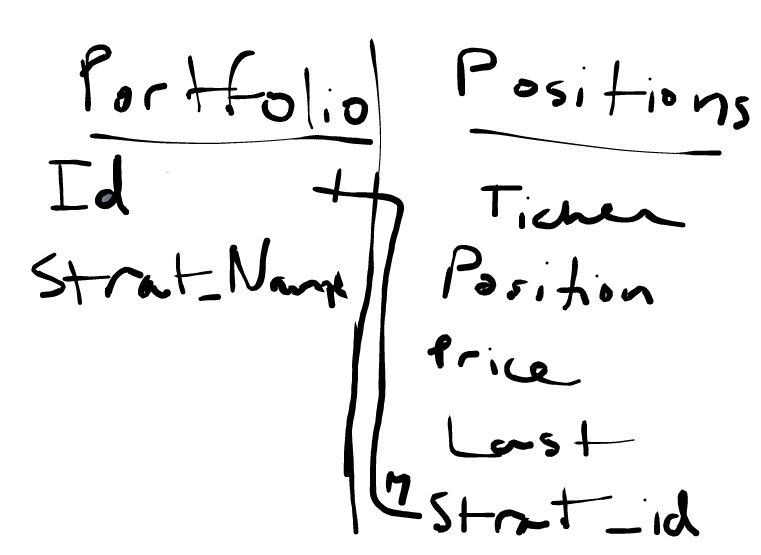 Portfolio
Id
Strat_Name
Positions
Ticker
Position
Price
Last
M
Strat_id